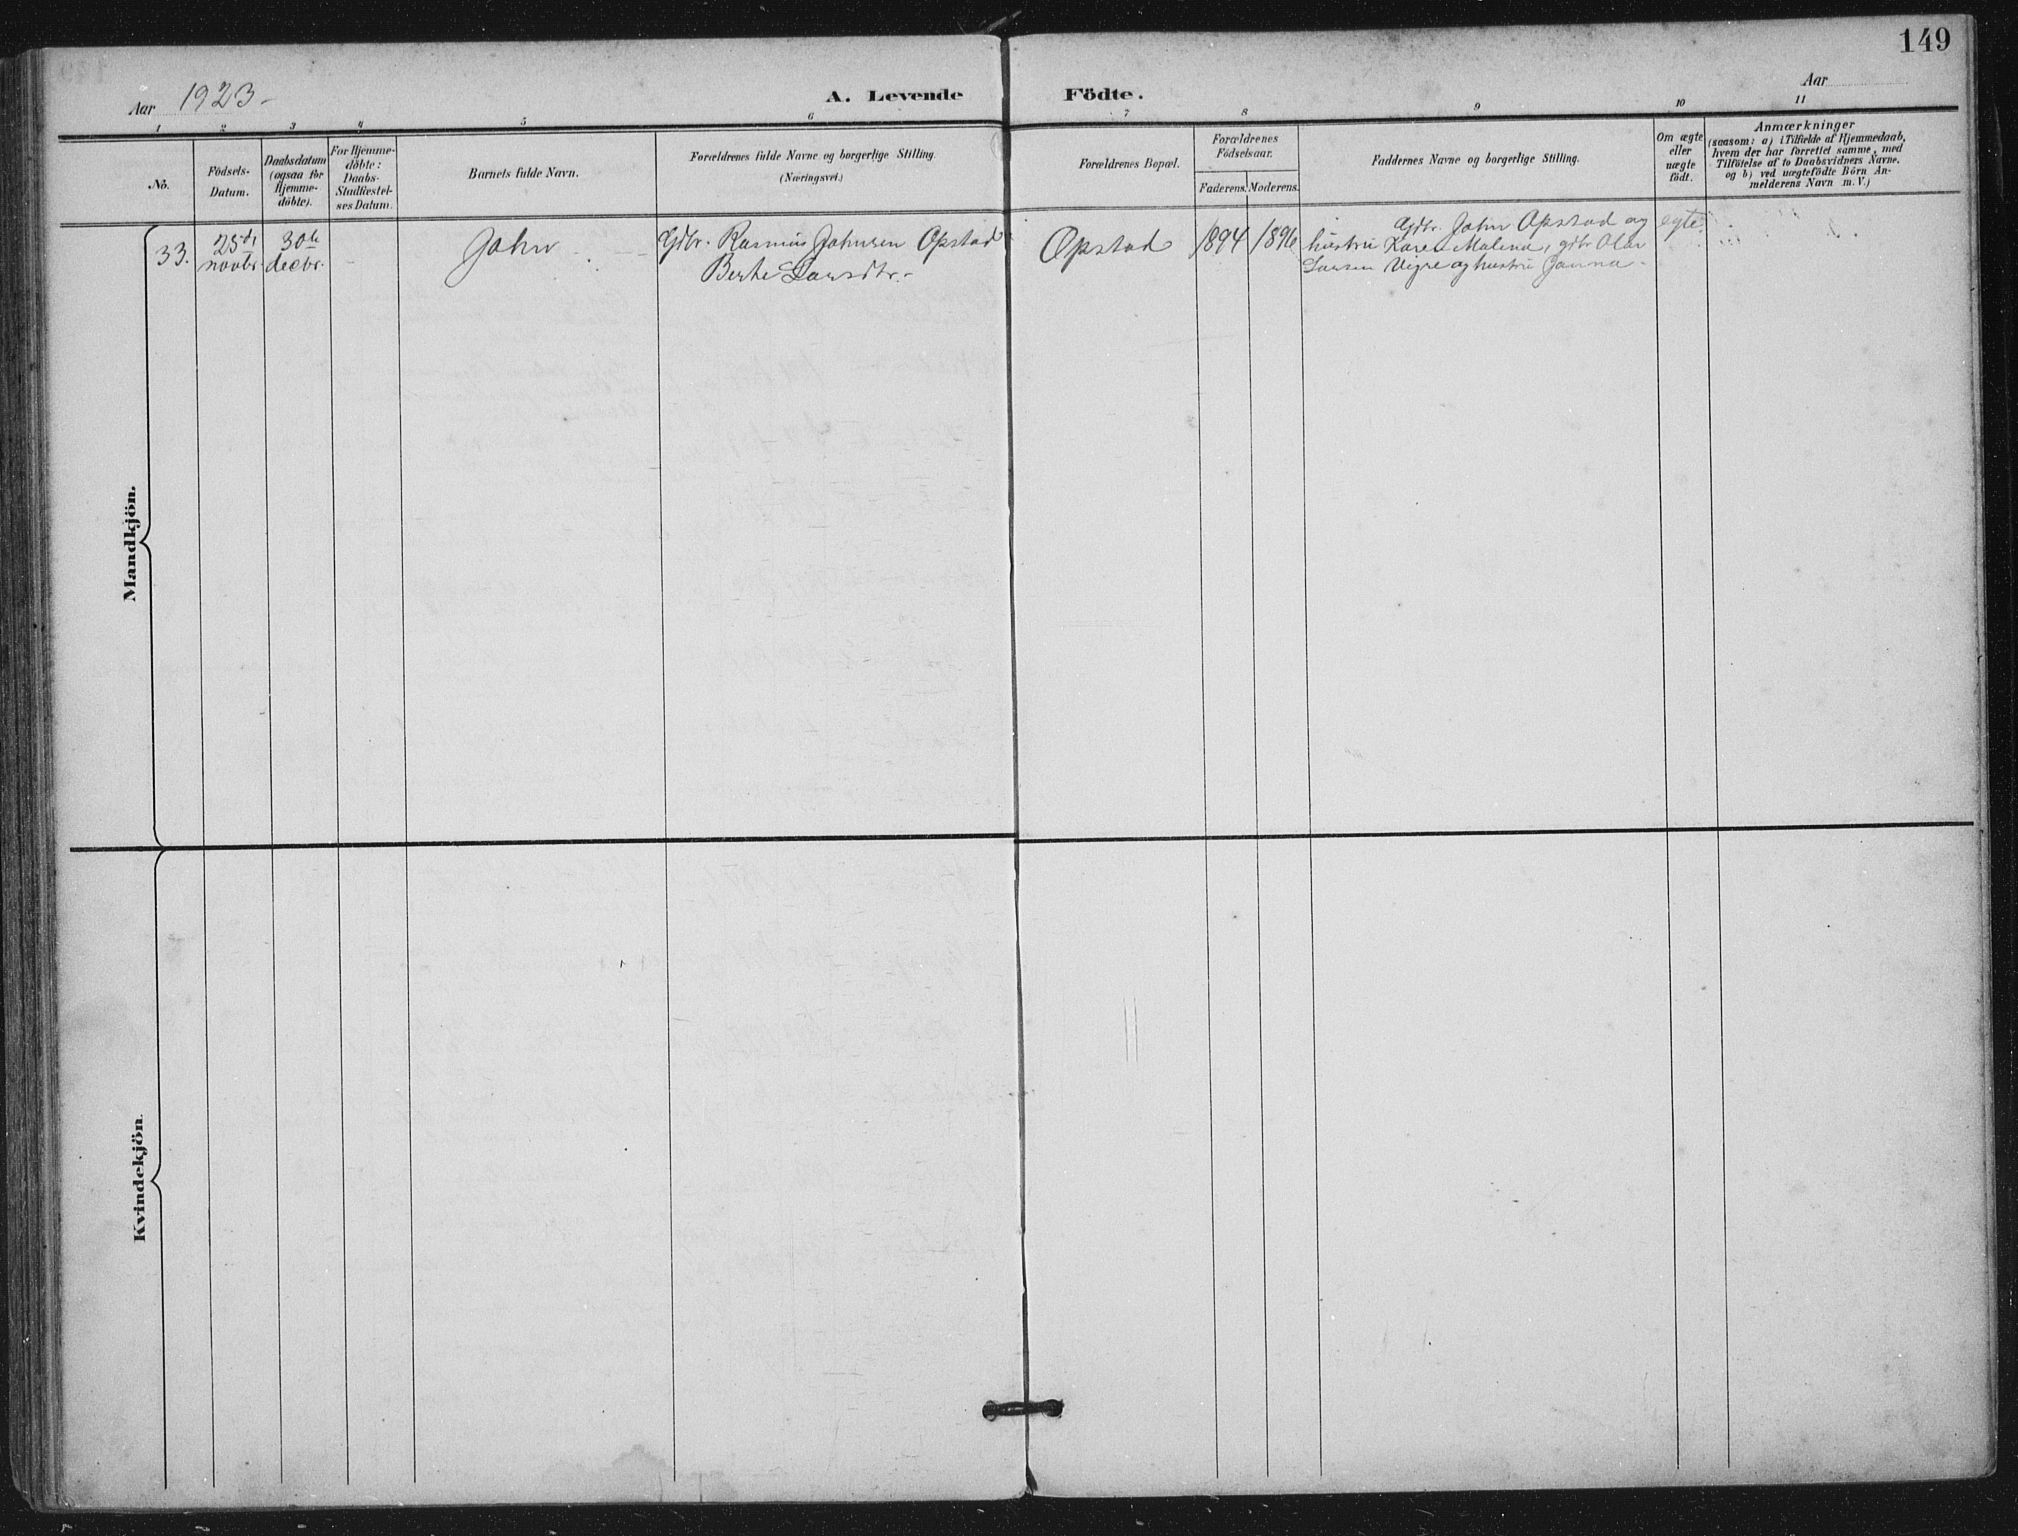 149
Aar 1923.
A. Levende Födte.
Aar
1 2 3 4 5 6 7 8 9 10 11
No.
Födsels-
Datum.
Daabsdatum
(ogsaa for
Hjemme-
döbte).
For Hjemme-
döbte:
Daabs-
Stadfæstel-
ses Datum.
Barnets fulde Navn.
Forældrenes fulde Navne og borgerlige Stilling.
(Næringsvei.)
Forældrenes Bopæl.
Forældrenes
Födselsaar.
Faderens. Moderens.
Faddernes Navne og borgerlige Stilling.
Om ægte
eller
uægte
födt.
Anmærkninger
(saasom: a) i Tilfælde af Hjemmedaab,
hvem der har forrettet samme, med
Tilföielse af to Daabsvidners Navne.
og b) ved uægtefödte Börn An-
melderens Navn m. V.)
Mandkjön.
33.
25de
novbr.
30te
decbr.
John
Gdbr. Rasmus Johnsen Opstad
Berte Larsdtr.
Opstad
1894 1896
Gdbr. John Opstad og
hustru Karen Malena, gdbr Olav
Larsen Vigre og hustru Janna
egte
Kvindekjön.